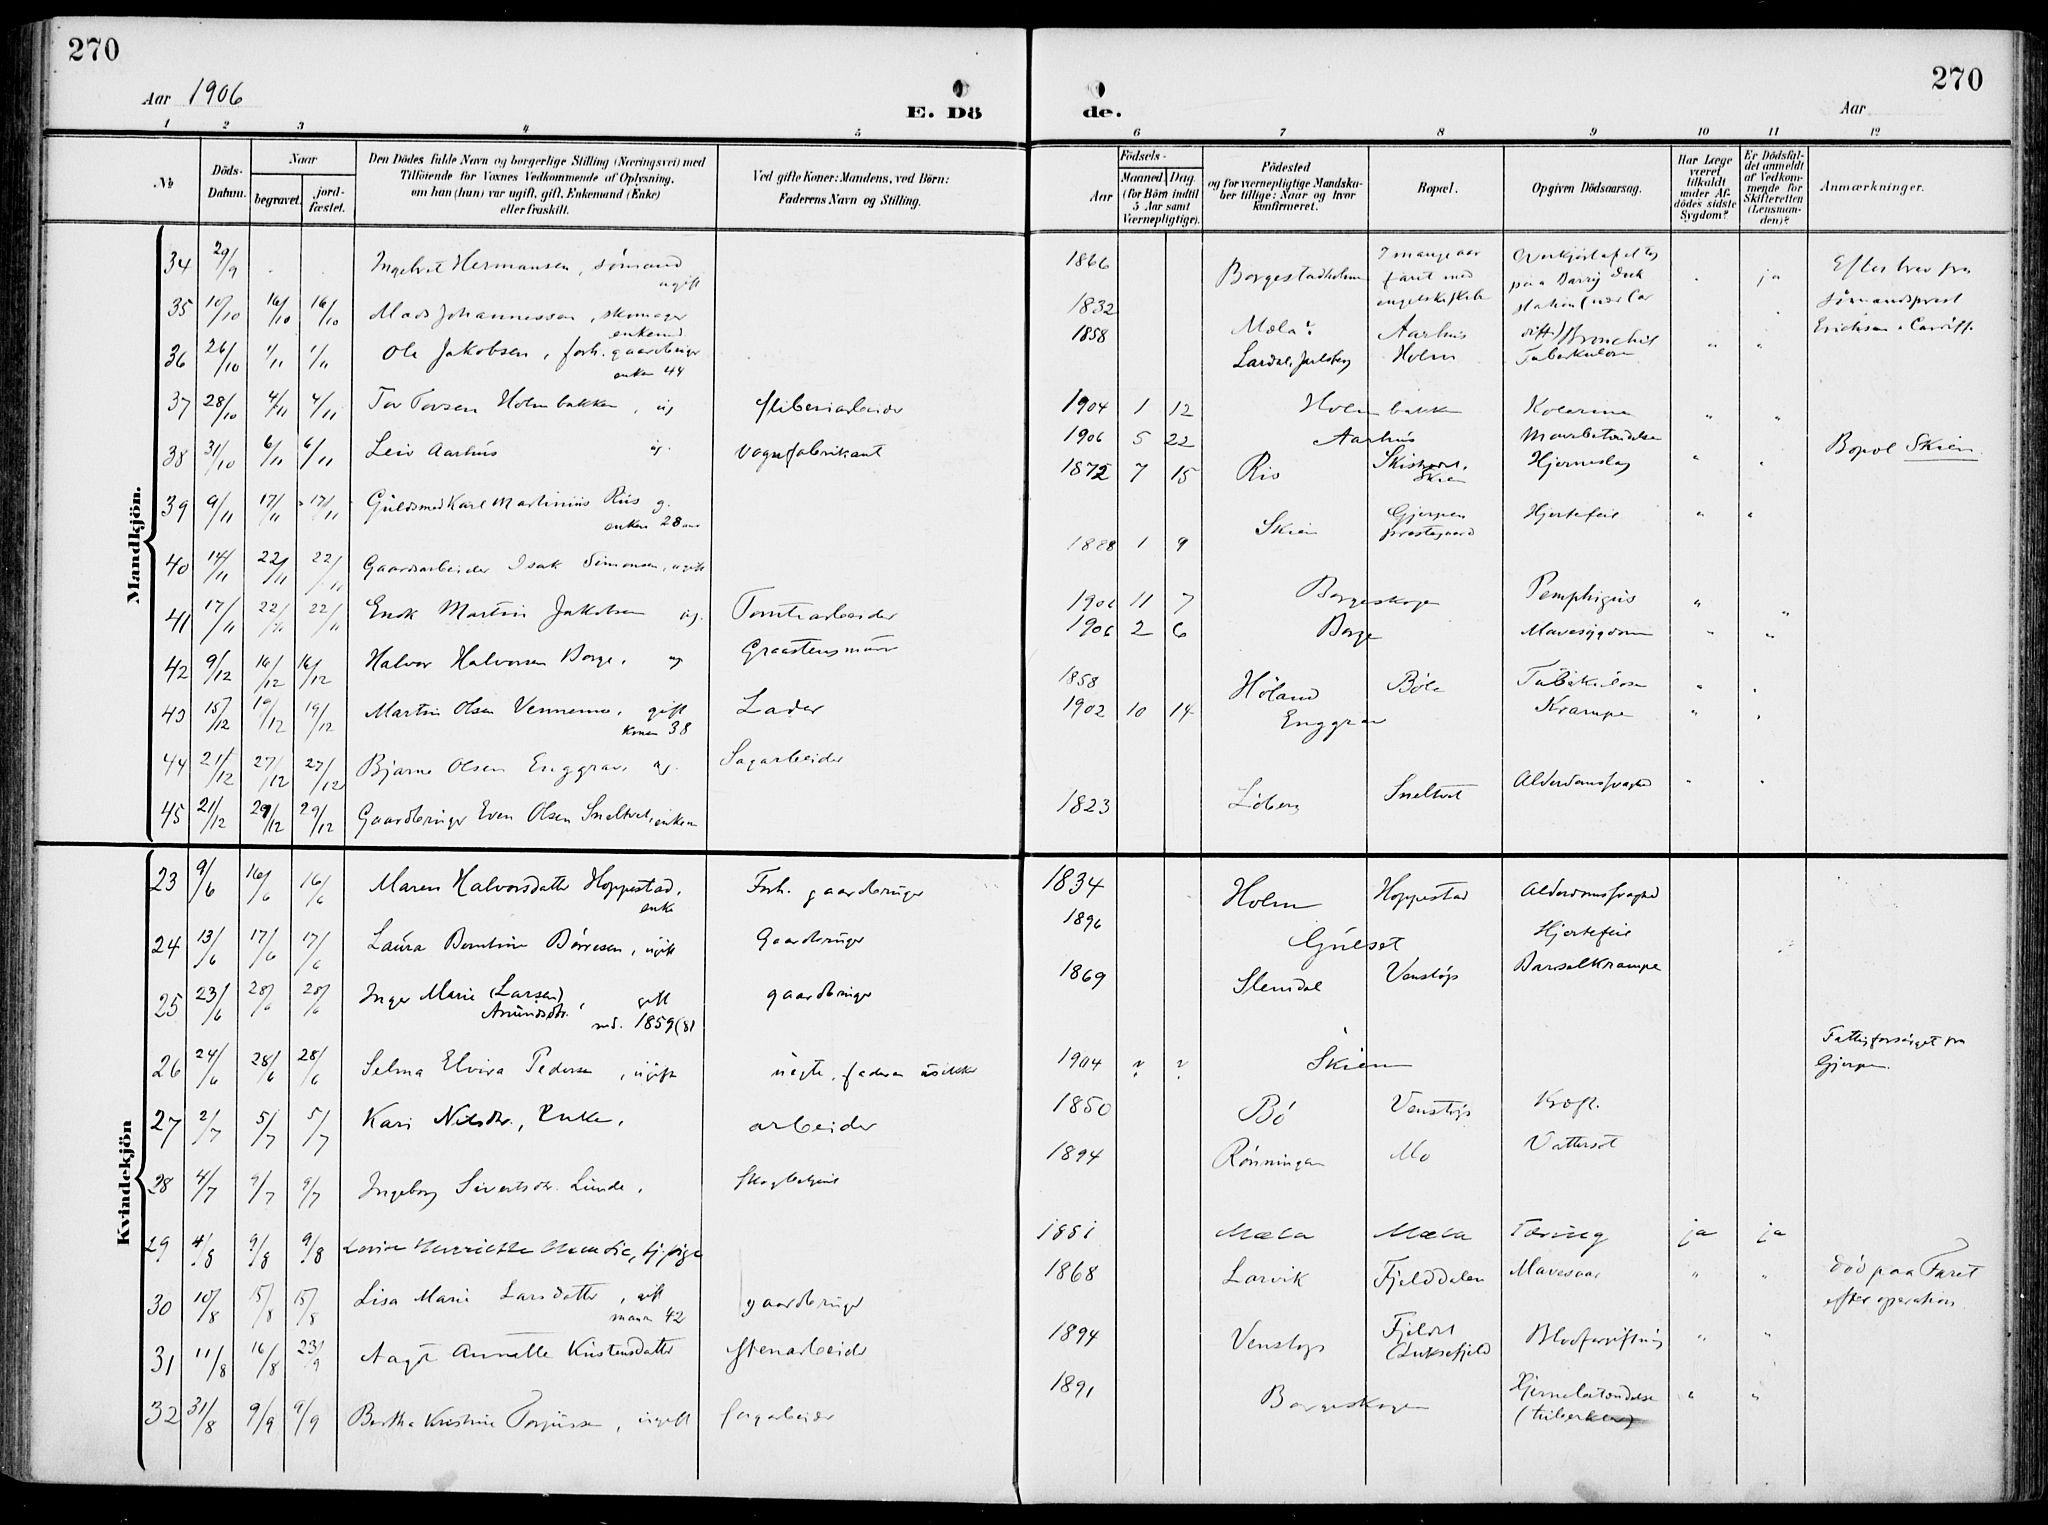 270
Aar 1906
E. Dö
1 2 3 4 5
No
Döds-
Datum.
Naar
begravet.
jord-
fæstet.
Den Dödes fulde Navn og borgerlige Stilling (Næringsvei) med
Tilföiende for Voxnes Vedkommende af Oplysning,
om han (hun) var ugift, gift, Enkemand (Enke)
eller fraskilt.
Ved gifte Koner: Mandens, ved Börn:
Faderens Navn og Stilling.
Mandkjön.
34 29/9 Ingebret Hermansen, sömand
ugift
35 10/10 16/10 16/10 Mads Johannessen, skomager
enkemd
36 26/10 1/11 1/11 Ole Jakobsen, forh. gaardbruger
enken 44
37 28/10 4/11 4/11 Tor Torsen Holmbakken, ug
38 31/10 6/11 6/11 Leiv Aarhus ug. Vognfabrikant
39 9/11 17/11 17/11 Guldsmed Karl Martinius Riis g.
enken 28 aar
40 14/11 22/11 22/11 Gaardsarbeider Isak Simonsen, ugift
41 17/11 22/11 22/11 Martin Jakobsen ug. Tomtearbeider
42 9/12 16/12 16/12 Halvor Halvorsen Borge, ug
43 15/12 19/12 19/12 Martin Olsen Vennemo, gift
konen 38
44 21/12 27/12 27/12 Bjarne Olsen Enggrav, ug. Sagarbeider
45 21/12 29/12 29/12 Gaardbruger Even Olsen Sneltvet, enkem
Kvindekjön
23 9/6 16/6 16/6 Maren Halvorsdatter Hoppestad, Forh. gaardbruger
enke
24 13/6 17/6 17/6 Laura Berntine Börresen, ugift Gaardbruger
25 23/6 28/6 28/6 Inger Marie (Larsen) gift gaardbruger
Amundsdtr. 1859 (8)
26 24/6 28/6 28/6 Selma Elvira Pedersen, ugift uegte, faderen usikker
27 2/7 5/7 5/7 Kari Nilsdtr., Enke, arbeider
28 4/7 9/7 9/7 Ingeborg Sivertsdtr. Lunde,
29 4/8 9/8 9/8 Henriette
30 10/8 15/8 15/8 Lisa Marie Larsdatter, gift gaardbruger
mann 42
31 11/8 16/8 23/9 Aagot Annette Kristensdatter Stenarbeider
32 31/8 9/9 9/9 Bertha Kristine Torjussen, ugift
270
de.
Aar
6 7 8 9 10 11 12
Födsels-
Aar
Maaned. Dag.
(for Börn indtil
5 Aar samt
Værnepligtige).
Födested
og for værnepligtige Mandska-
ber tillige: Naar og hvor
konfirmeret.
Bopæl.
Opgiven Dödsaarsag.
Har Læge
været
tilkaldt
under Af-
dödes sidste
Sygdom?
Er Dödsfal-
det anmeldt
af Vedkom-
mende for
Skifteretten
(Lensman-
den)?
Anmærkninger.
1866 Borgestadholmen I mange aar
faret med
engelske skibe
Overkjört af et tog
paa Barry dock
station (nær Car
diff)
ja
Efter brev fra
sömandsprest
Erichsen, Cardiff
1832 Mæla? Aarhus Bronchit
1858 Lardal, Jarlsberg Holm Tuberkulose
1904 1 12 Holmbakken Kolerine
1906 5 22 Aarhus Mavebetændelse
1872 7 15 Ris Skien Hjerneslag
Bopæl Skien
1888 1 9 Skien Gjerpen
prestegaard
Hjertefeil
1906 11 7 Borgeskogen Pemphigus
1906 2 6 Borge Mavesygdom
1858 Höland Böle Tuberkulose
1902 10 14 Enggrav Krampe
1823 Liberg Sneltvet Alderdomssvaghed
1834 Holm Hoppestad Alderdomssvaghed
1896 Gulset Hjertefeil
1869 Stemdal Venstöp Barselkrampe
1904 ? ? Skien
Fattigforsörget fra
Gjerpen.
1850 Bö Venstöp Kræft.
1894 Rönningen Mo Vattersot
1881 Mæla Mæla Tæring ja ja
1868 Larvik Fjelddalen Mavesaar
död paa Faret
efter operation.
1894 Venstöp Fjeldet
(Luksefjeld
Blodforgiftning
1891 Borgeskogen Hjernebetændelse